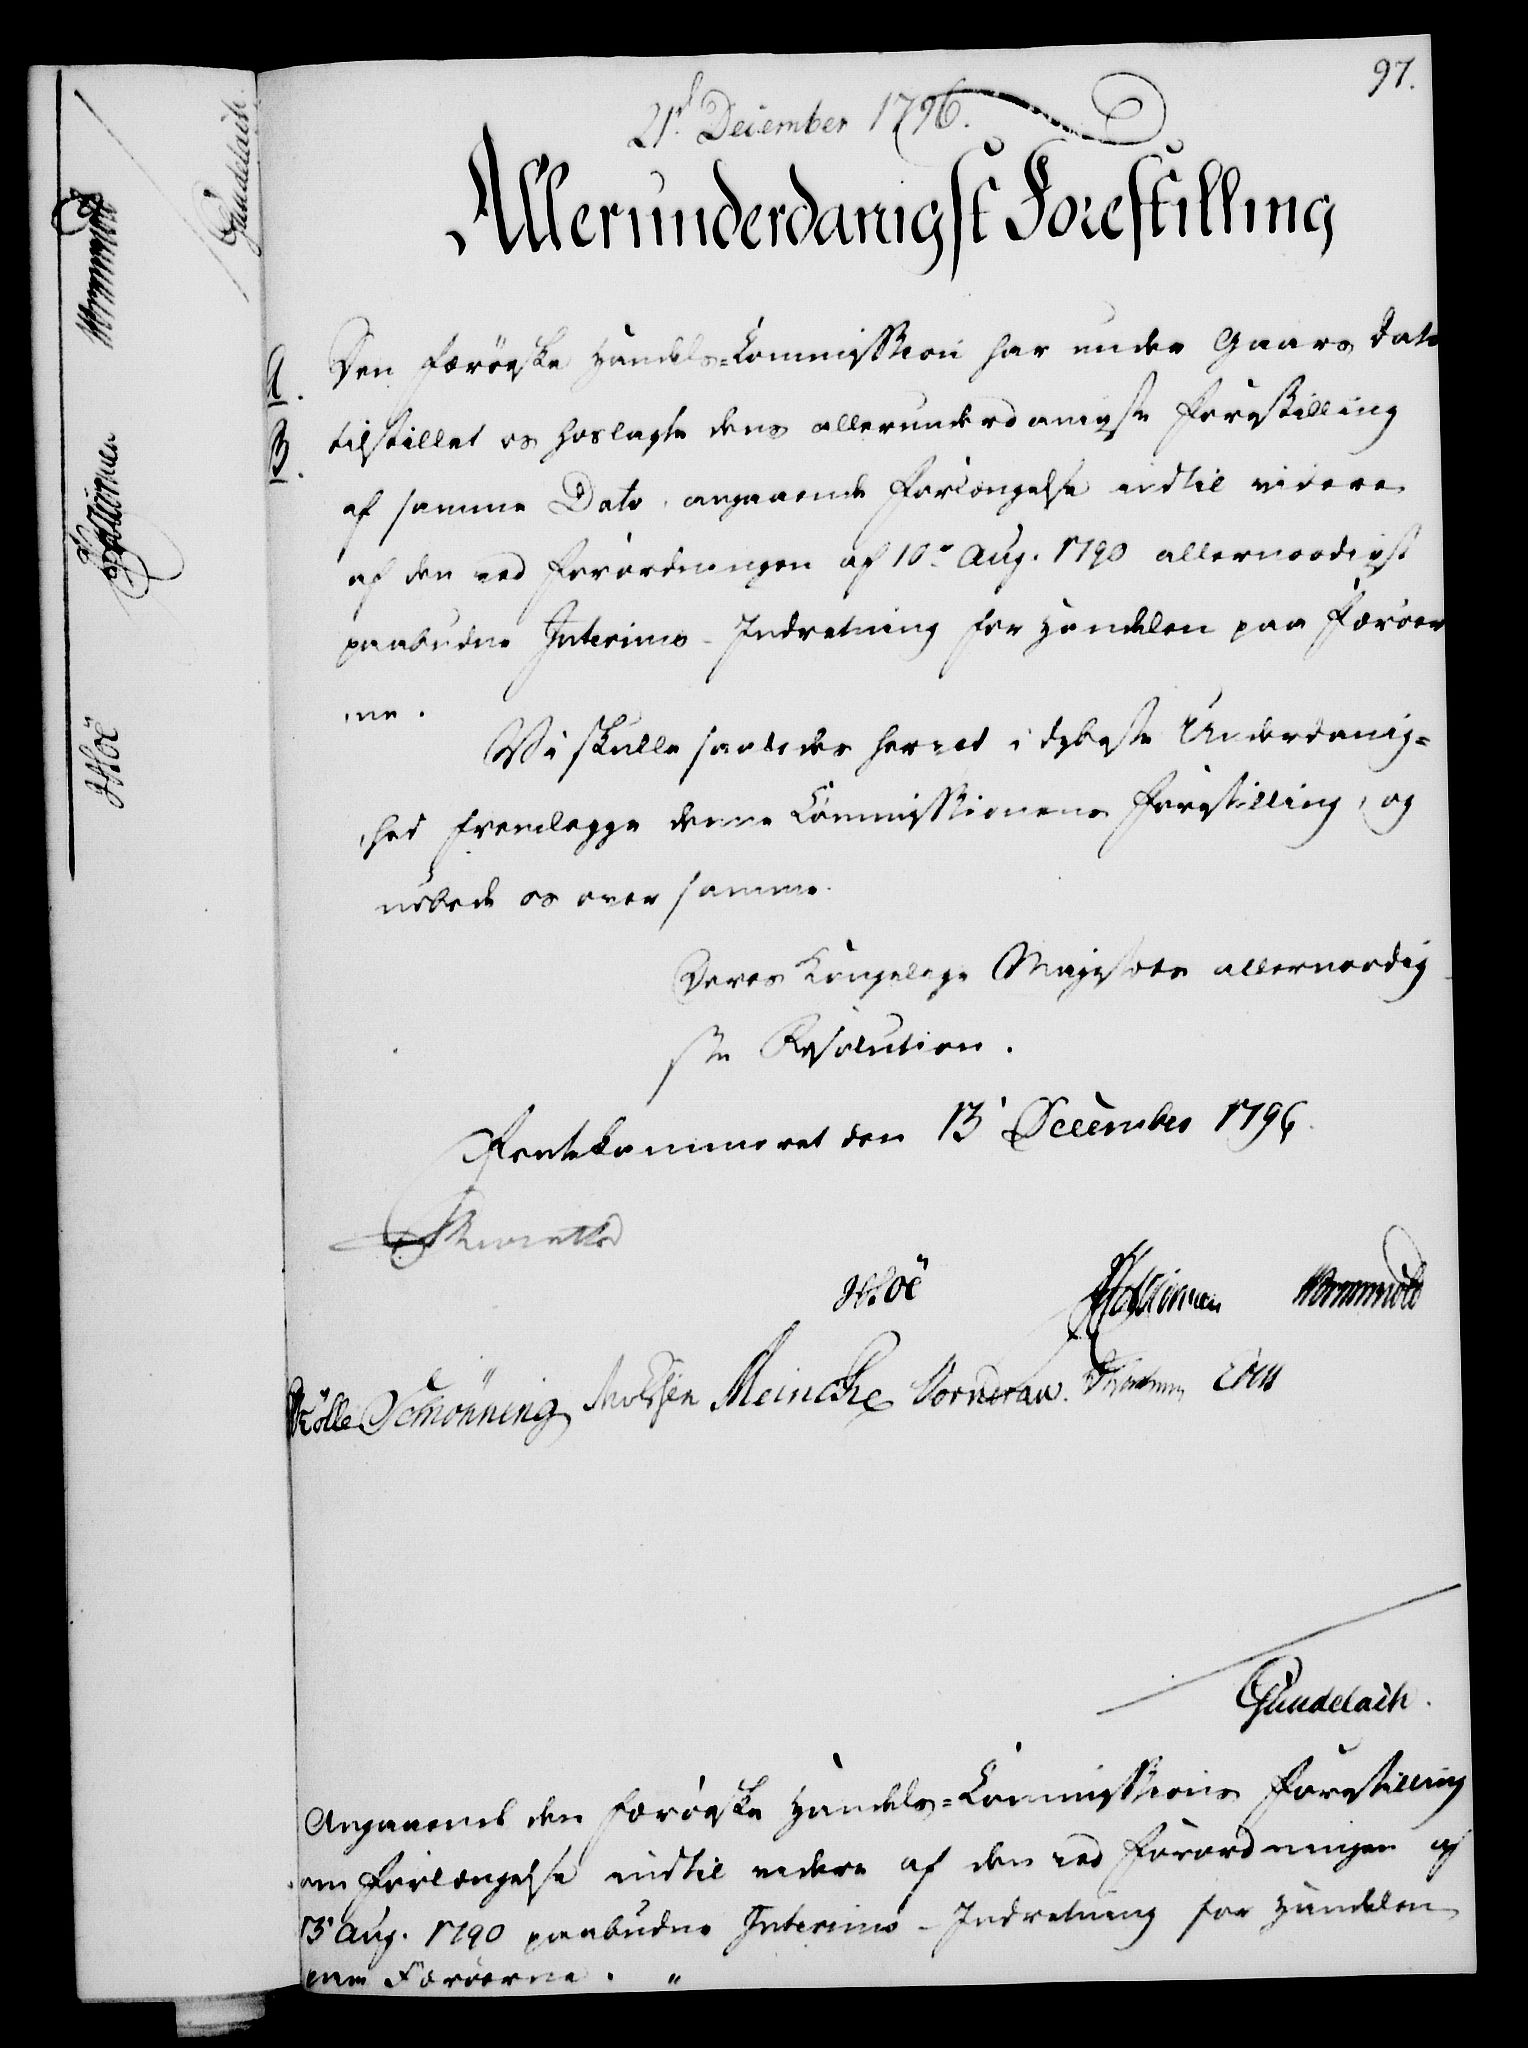 97.
21de December 1796.
Allerunderdanigst Forestilling
A. Den færöeske Handels-Commission har under Gaars Dato
B. tilstillet os hoslagte dens allerunderdanigste Forestilling
af samme Dato, angaaende Forlængelse indtil videre
af den ved Forordningen af 10de Aug. 1790 allernaadigst
paabudne Interims-Indretning for Handelen paa Færöer
ne.
Vi skulle saaledes herved i dybeste Underdanig=
hed fremlegge denne Commissionens Forestilling, og
udbede os over samme
Deres Kongelige Majestæts allernaadig
ste Resolution.
Rentekammeret den 13 December 1796.
Höe
Wormskiold
Rölle Schönning Meincke Vornderau
Gundelach.
Angaaende den færöeske Handels=Commissions Forestilling
om Forlængelse indtil videre af den ved Forordningen af
13 Aug. 1790 paabudne Interims-Indretning for Handelen
paa Færöerne. "
Gundelach.
Wormskiold
Höe